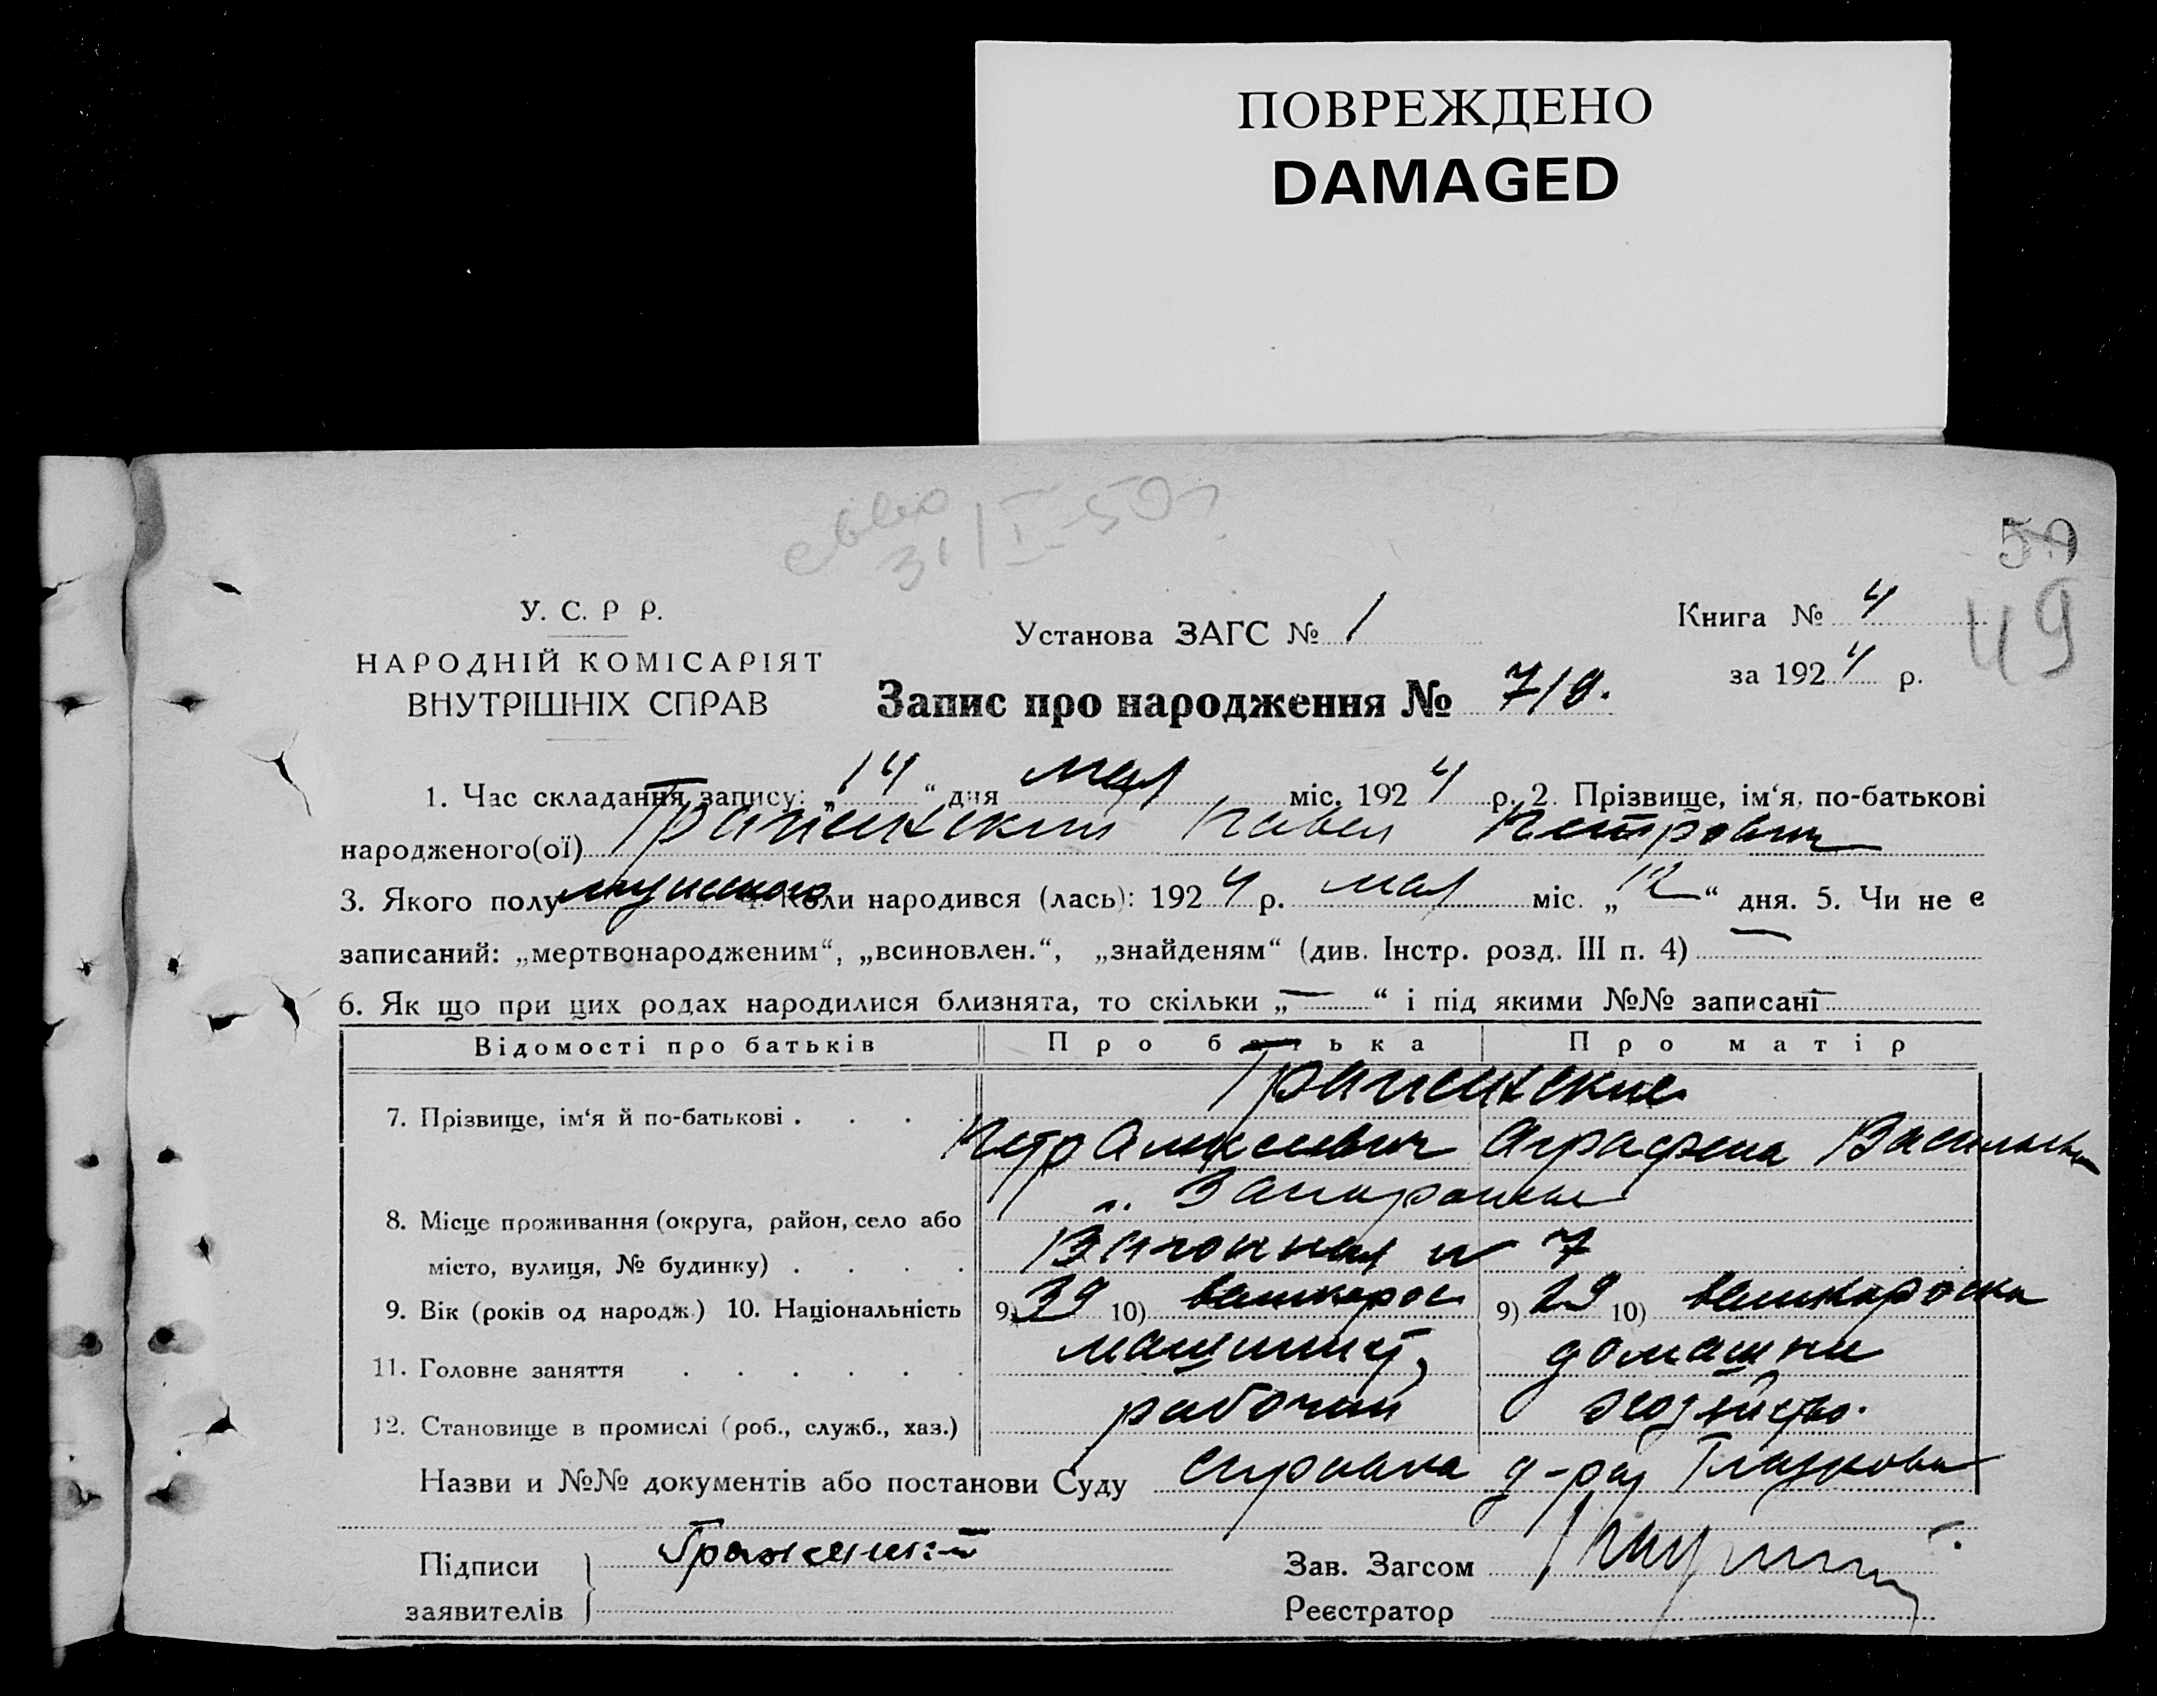 ПОВРЕЖДЕНО
DAMAGED
31/I-50г
50
49
У. С. Р Р.
НАРОДНІЙ КОМІСАРІЯТ
ВНУТРІШНІХ СПРАВ
Установа ЗАГС № 1
Книга № 4
за 1924 р.
Запис про народження №
1. Час складання запису: „14“ дня мая міс. 1924 р. 2. Прізвище, ім‘я, по-батькові
народженого(ої) Павел Петрович
3. Якого полу мужского 4. Коли народився (лась): 1924 р. мая міс. „12“ дня. 5. Чи не є
записаний: „мертвонародженим“, „всиновлен.“, „знайденям“ (див. Інстр. розд. III п. 4) —
6. Як що при цих родах народилися близнята, то скільки „—“ і під якими №№ записані —
Відомості про батьків Про батька Про матір
7. Прізвище, ім‘я й по-батькові . . . .
Петр Алексеевич Аграфена Васильевн
8. Місце проживання (округа, район, село або
місто, вулиця, № будинку) . . . . Вагонная № 7
9. Вік (років од народж.) 10. Національність 9) 39 10) великорос 9) 29 10) великороска
11. Головне заняття . . . . . . машинист, домашни
12. Становище в промислі (роб., служб., хаз.) рабочий хозяйство.
Назви и №№ документів або постанови Суду справка д-ра Глазкова
Підписи
заявителів
Зав. Загсом
Реєстратор